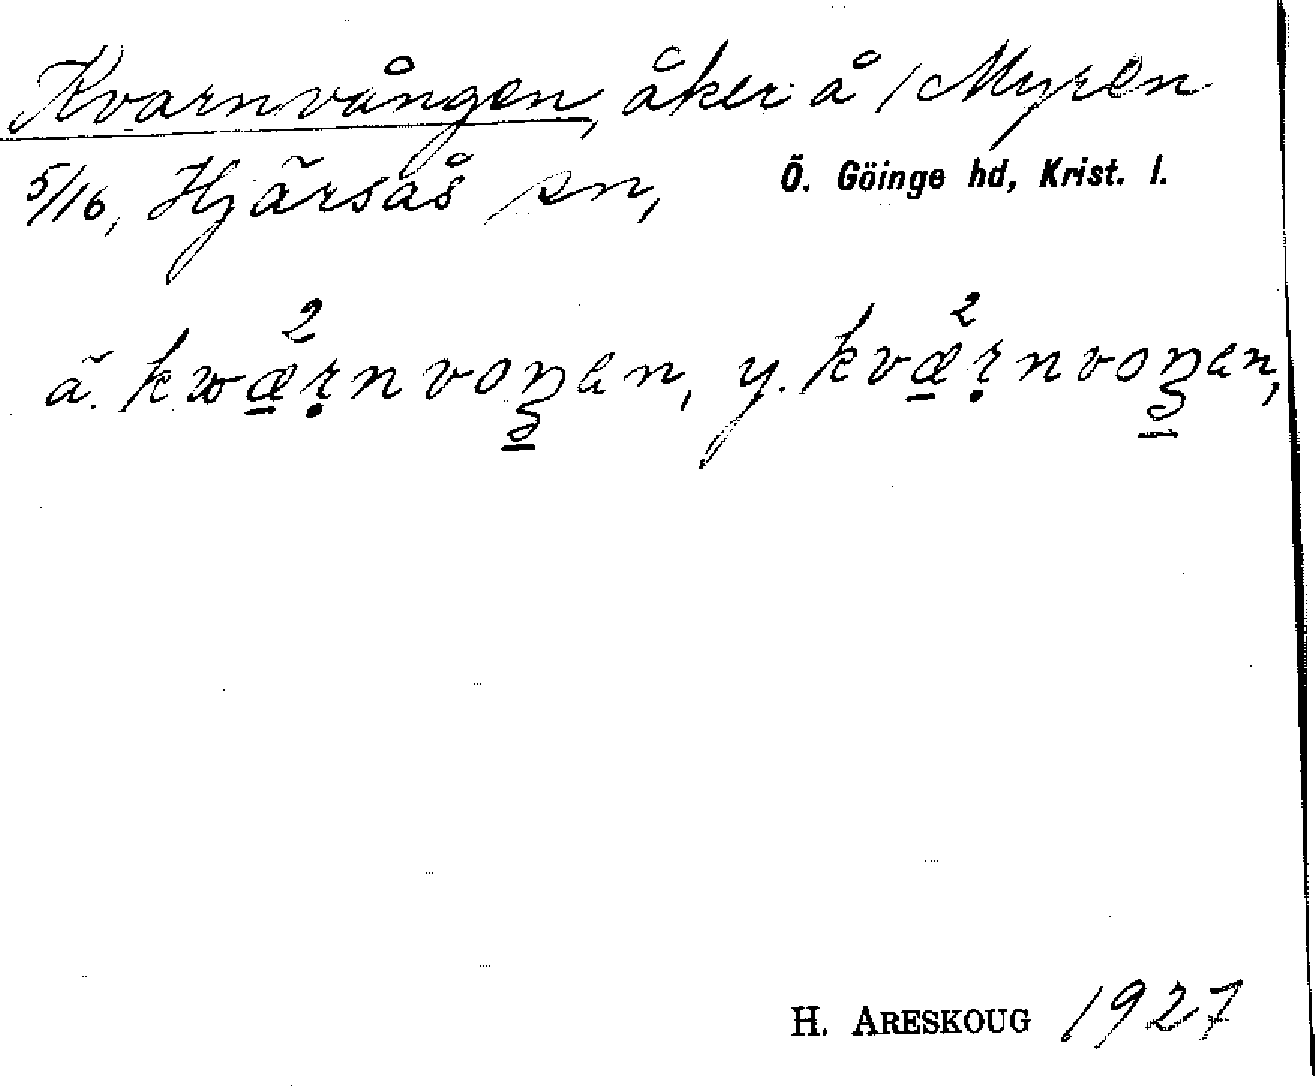 Kvarnvången, åker å 1 Myren
5/16, Hjärsås sn, Ö. Göinge hd, Krist. l.
ä. kwæ̠²ṛnvoŋen, y. kvæ̠²ṛnvoŋen,
H. ARESKOUG 1927